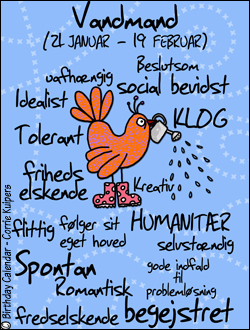 Vandmand
(21 JANUAR - 19 FEBRUAR)
Beslutsom
uafhængig
social bevidst
Idealist
KLOG
Tolerant
friheds
elskende
Kreativ
flittig
følger sit
eget hoved
HUMANITÆR
selvstændig
Spontan
gode indfald
til
problemløsning
Romantisk
fredselskende
begejstret
© Birthday Calendar - Corrie Kuipers